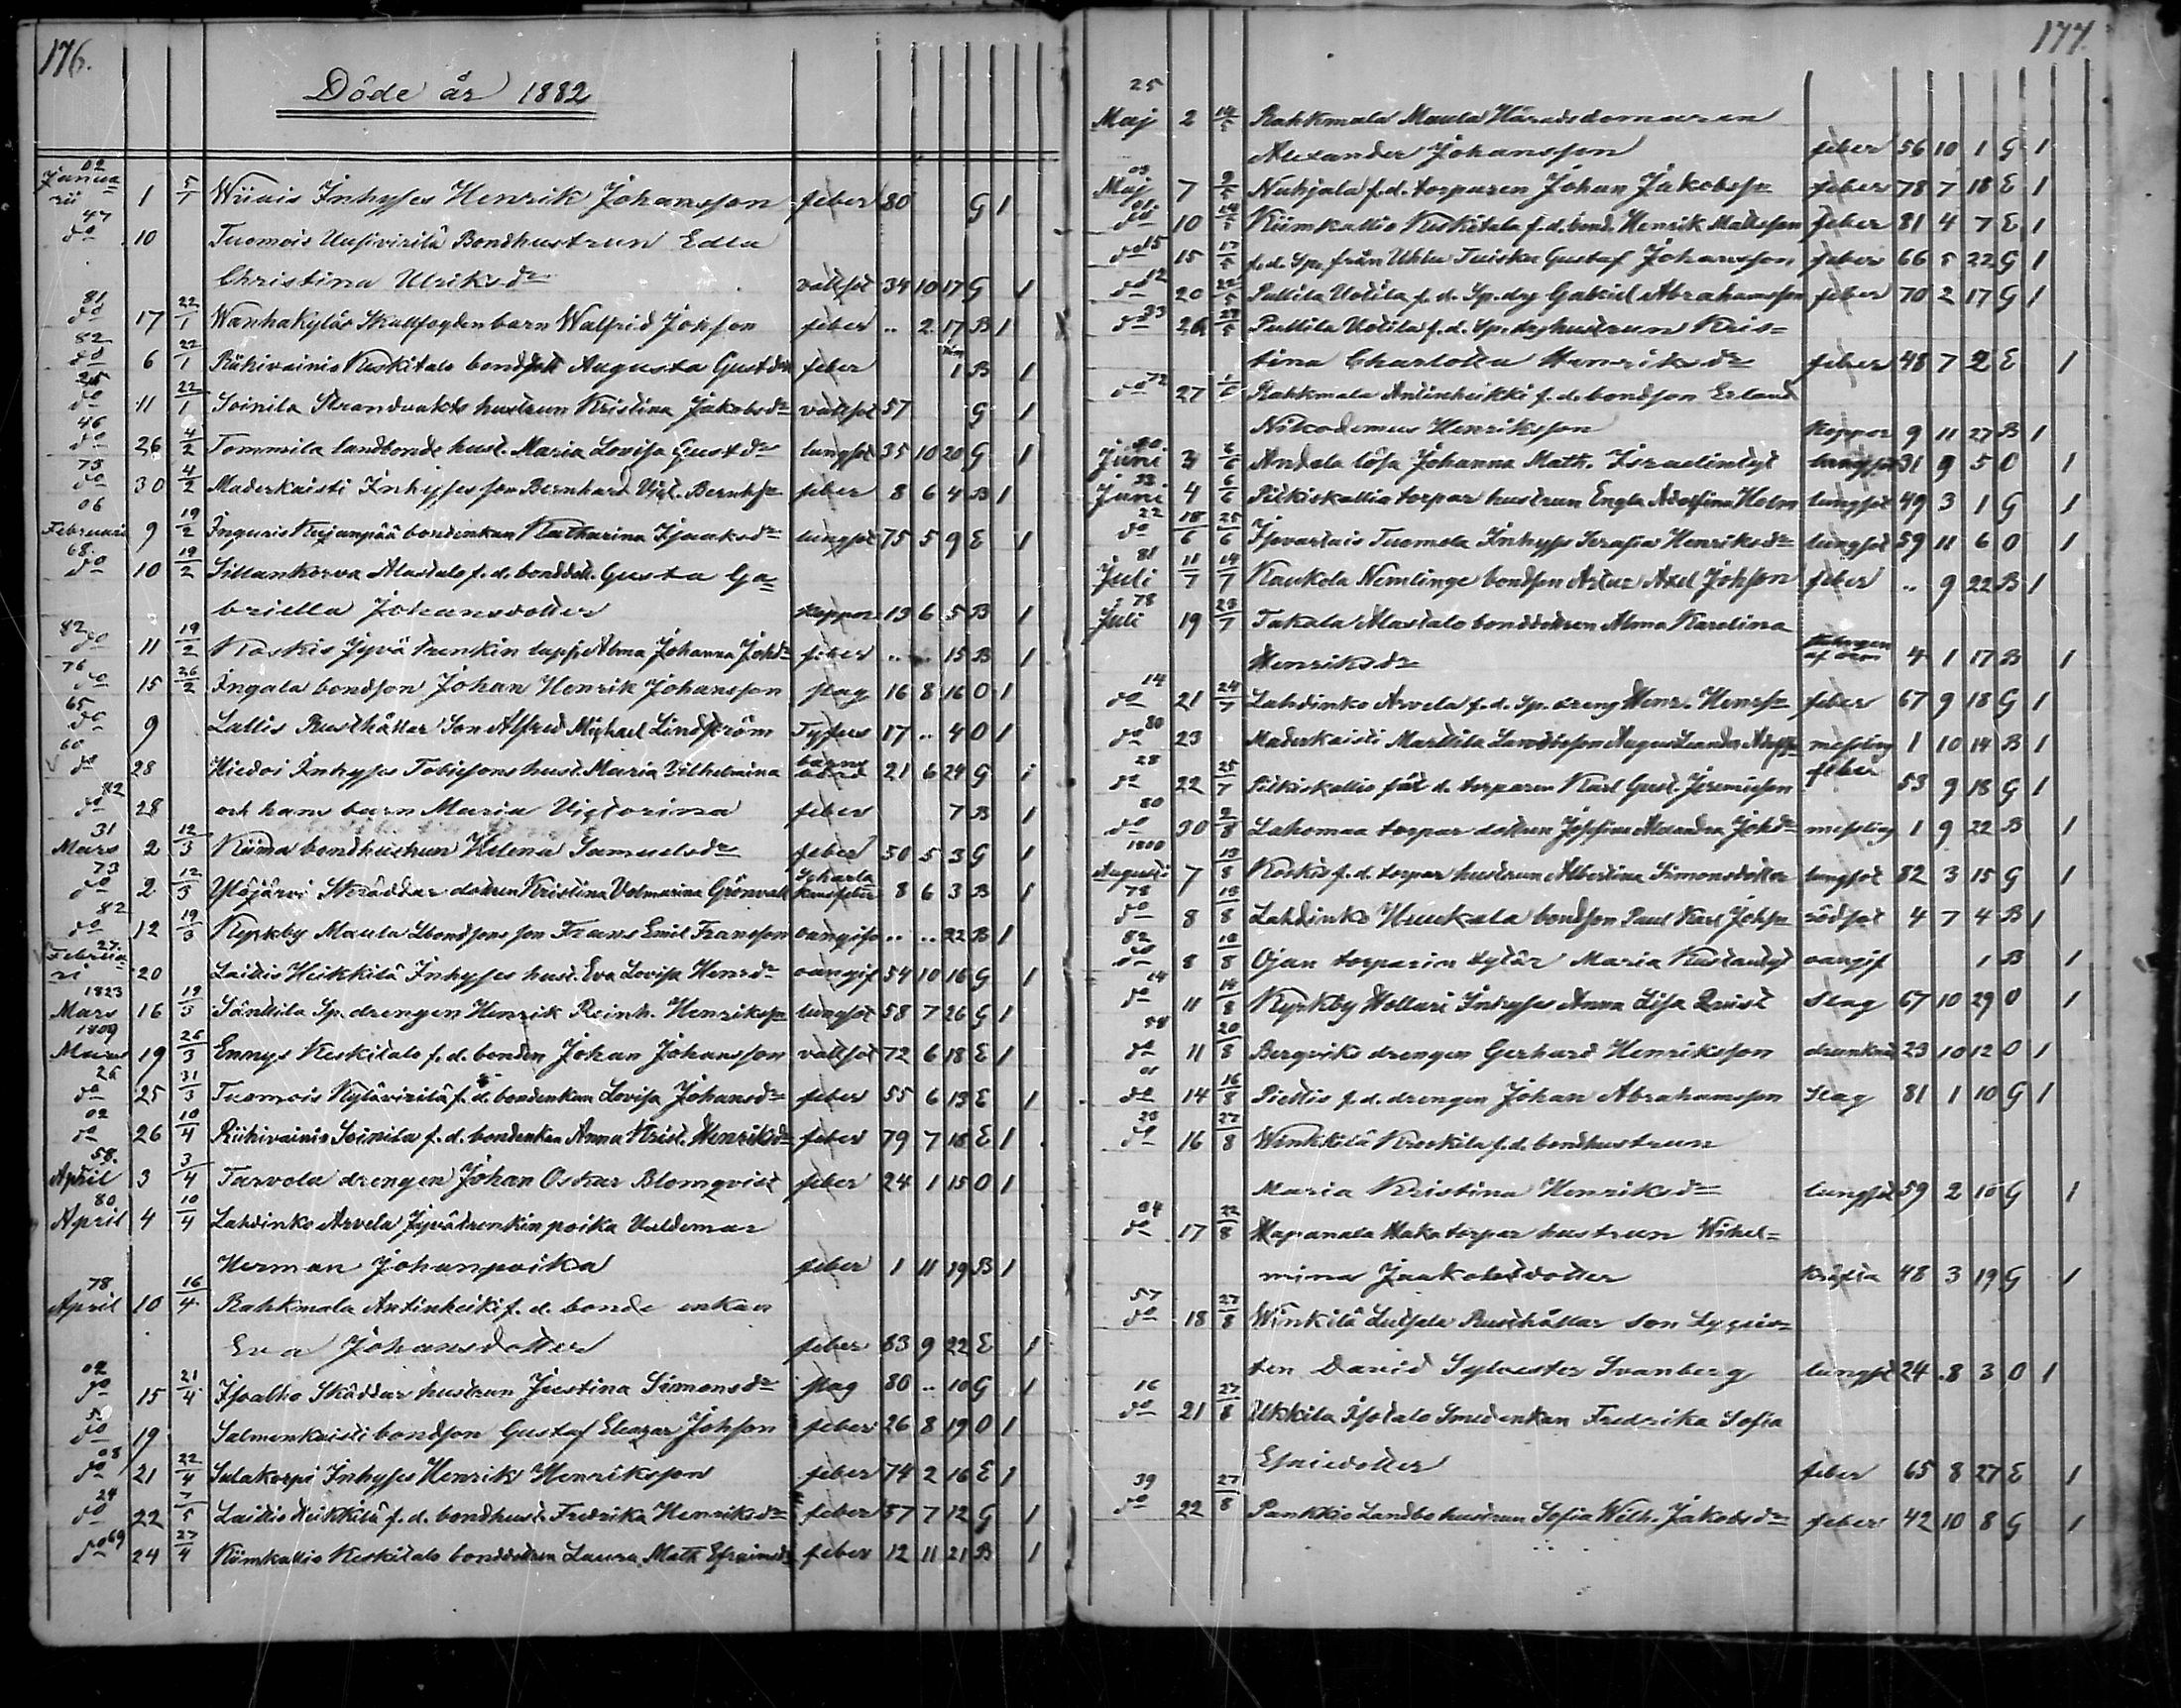 176.
Döde år 1882
02
Janua-
rii 1 5/1 Wiiais Inhyses Henrik Johansson feber 80 G 1
47
do 10 Tuomois Uusivirilä Bondhustrun Edla
Christina Ulriksdr vattsot 34 10 17 G 1
81
do 17 22/1 Wanhakylä Skallfogden barn Walfrid Johsson feber .. 2 17 B 1
82
do 6 22/1 Riihivainio Keskitalo bonddott Augusta Gustdr feber 1 B 1
25
do 11 22/1 Soinila Strandvakts hustrun Kristina Jakobsdr vattsot 57 G 1
46
do 26 4/2 Tommila landbonde hust. Maria Lovisa Gustdr lungsot 35 10 20 G 1
75
do 30 4/2 Maderkaisti Inhyses son Bernhard Vict. Bernhsn feber 8 6 4 B 1
06
Februari 9 19/2 Inguris Keijanpää bondenkan Katharina Isaaksdr lungsot 75 5 9 E 1
68.
do 10 19/2 Sillankorva Alastalo f.d. bonddott. Gusta Ga-
briella Johansdotter koppor 13 6 5 B 1
82
do 11 19/2 Koskis Jyvä trenkin lapsi Alma Johanna Johdr feber .. .. 15 B 1
76
do 15 26/2 Ingala bondson Johan Henrik Johansson slag 16 8 16 O 1
65
do 9 Lallis Rusthåller Son Alfred Michael Lindström Tyfus 17 .. 4 O 1
60
do 28 Hiedoi Inhyses Tobiesons hust. Maria Vilhelmina barns 21 6 24 G 1
82
do 28 och hans barn Maria Victorina feber 7 B 1
31
Mars 2 12/3 Kiima bondhustrun Helena Samuelsdr feber 50 5 3 G 1
73
do 2 12/3 Yläjärvi Skräddar dottren Kristina Volmarina Grönvall Scharla kansfeber 8 6 3 B 1
82
do 12 19/3 Kyrkby Maula Lbondsons son Frans Emil Fransson oangifv .. .. 22 B 1
27.
Februa-
ri 20 Laidis Heikkilä Inhyses hust. Eva Lovisa Henrdr oangif 54 10 16 G 1
1823
Mars 16 19/3 Säntila Sp. drengen Henrik Reinh. Henrikssn lungsot 58 7 26 G 1
1809
Mars 19 26/3 Ennys Keskitalo f.d. bonden Johan Johansson vattsot 72 6 18 E 1
26
do 25 31/3 Tuomois Kylävirilä f.d. bondenkan Lovisa Johansdr feber 55 6 13 E 1
02
do 26 10/4 Riihivainio Soinila f.d. bondenkan Anna Krist. Henriksdr feber 79 7 18 E 1
58.
April 3 3/4 Tarvola drengen Johan Oskar Blomqvist feber 24 1 15 O 1
80
April 4 10/4 Lahdinko Arvela Jyvätrenkin poika Valdemar
Herman Johanpoika feber 1 11 19 B 1
78.
April 10 16/4 Rahkmala Antinheiki f.d. bonde enkan
Eva Johansdotter feber 83 9 22 E 1
02
do 15 21/4 Isoalho Skäddar hustrun Justina Simonsdr slag 80 .. 10 G 1
5
do 19 Salmenkaisti bondson Gustaf Eleazar Johsson feber 26 8 19 O 1
08
do 21 22/4 Sulakorpi Inhyses Henrik Henriksson feber 74 2 16 E 1
24
do 22 7/5 Laidis Heikkilä f.d. bondhust. Fredrika Henriksdr feber 57 7 12 G 1
69
do 24 27/4 Kiimkallio Keskitalo bonddottren Laura Math. Efraimsdr feber 12 11 21 B 1
177.
25
Maj 2 14/5 Rahkmala Maula Häradsdomaren
Alexander Johansson feber 56 10 1 G 1
03
Maj 7 9/5 Nuhjala f.d. torparen Johan Jakobssn feber 78 7 18 E 1
01
do 10 14/5 Kiimkallio Keskitalo f.d. bond. Henrik Mattsson feber 81 4 7 E 1
15
do 15 17/5 f.d. Sp. från Uhlu Tuiska Gustaf Johansson feber 66 5 22 G 1
12
do 20 22/5 Puttila Uotila f.d. Sp. drg Gabriel Abrahamsson feber 70 2 17 G 1
33
do 26 29/5 Puttila Uotila f.d. Sp. drg hustrun Kris-
tina Charlotta Henriksdr feber 48 7 2 E 1
72
do 27 1/6 Rahkmala Antinheikki f.d. bondson Erland
Nikodemus Henriksson koppor 9 11 27 B 1
50
Juni 3 6/6 Andela lösa Johanna Math. Israelintyt lungsot 31 9 5 O 1
33
Juni 4 6/6 Pitkiskallio torpar hustrun Engla Adolfina Holm lungsot 49 3 1 G 1
22
do 18/6 25/6 Isovartais Tuomola Inhyss Serafia Henriksdr lungsot 59 11 6 O 1
81
Juli 11/7 14/7 Kaukola Nemlinge bondson Artur Axel Johsson feber .. 9 22 B 1
78
Juli 19 23/7 Takala Alastalo bonddottren Alma Karolina
Henriksdr 4 1 17 B 1
14
do 21 24/7 Lahdinko Arvela f.d. Sp. dreng Henr. Henrssn feber 67 9 18 G 1
80
do 23 Maderkaisti Marttila August Leander messling 1 10 14 B 1
28
do 22 25/7 Pitkiskallio fåt. d. torparen Karl Gust. Jeremiesson feber 53 9 18 G 1
80
do 30 2/8 Lahomaa torpar dottren Josefina Alexandra Johdr messling 1 9 22 B 1
1800
Augusti 7 13/8 Koskis f.d. torpar hustrun Albertina Simonsdotter lungsot 82 3 15 G 1
78
do 8 18/8 Lahdinko Huukala bondson Paul Karl Johssn rödsot 4 7 4 B 1
82
do 8 18/8 Ojan torparin tytär Maria Kustaantyt oangif 1 B 1
14
do 11 14/8 Kyrkby Hollari Inhyses Anna Lisa Qvist Slag 67 10 29 O 1
58
do 11 20/8 Bergviks drengen Gerhard Henriksson drunknat 23 10 12 O 1
01
do 14 16/8 Piettis f.d. drengen Johan Abrahamsson Slag 81 1 10 G 1
23
do 16 27/8 Winkkilä Kreekila f.d. bondhustrun
Maria Kristina Henriksdr lungsot 59 2 15 G 1
34
do 17 22/8 Hapanala Haka torpar hustrun Wihel-
mina Jaakobsdotter kräfta 48 3 19 G 1
57
do 18 27/8 Winkilä Lutjala Rusthållar Son Lyceis-
ten David Sylvester Svanberg lungsot 24 8 3 O 1
16
do 21 27/8 Ukkila Isotalo Smedenkan Fredrika Sofia
Esaiedotter feber 65 8 27 E 1
39
do 22 27/8 Pankkio Landbo hustrun Sofia Wilh. Jakobsdr feber 42 10 8 G 1